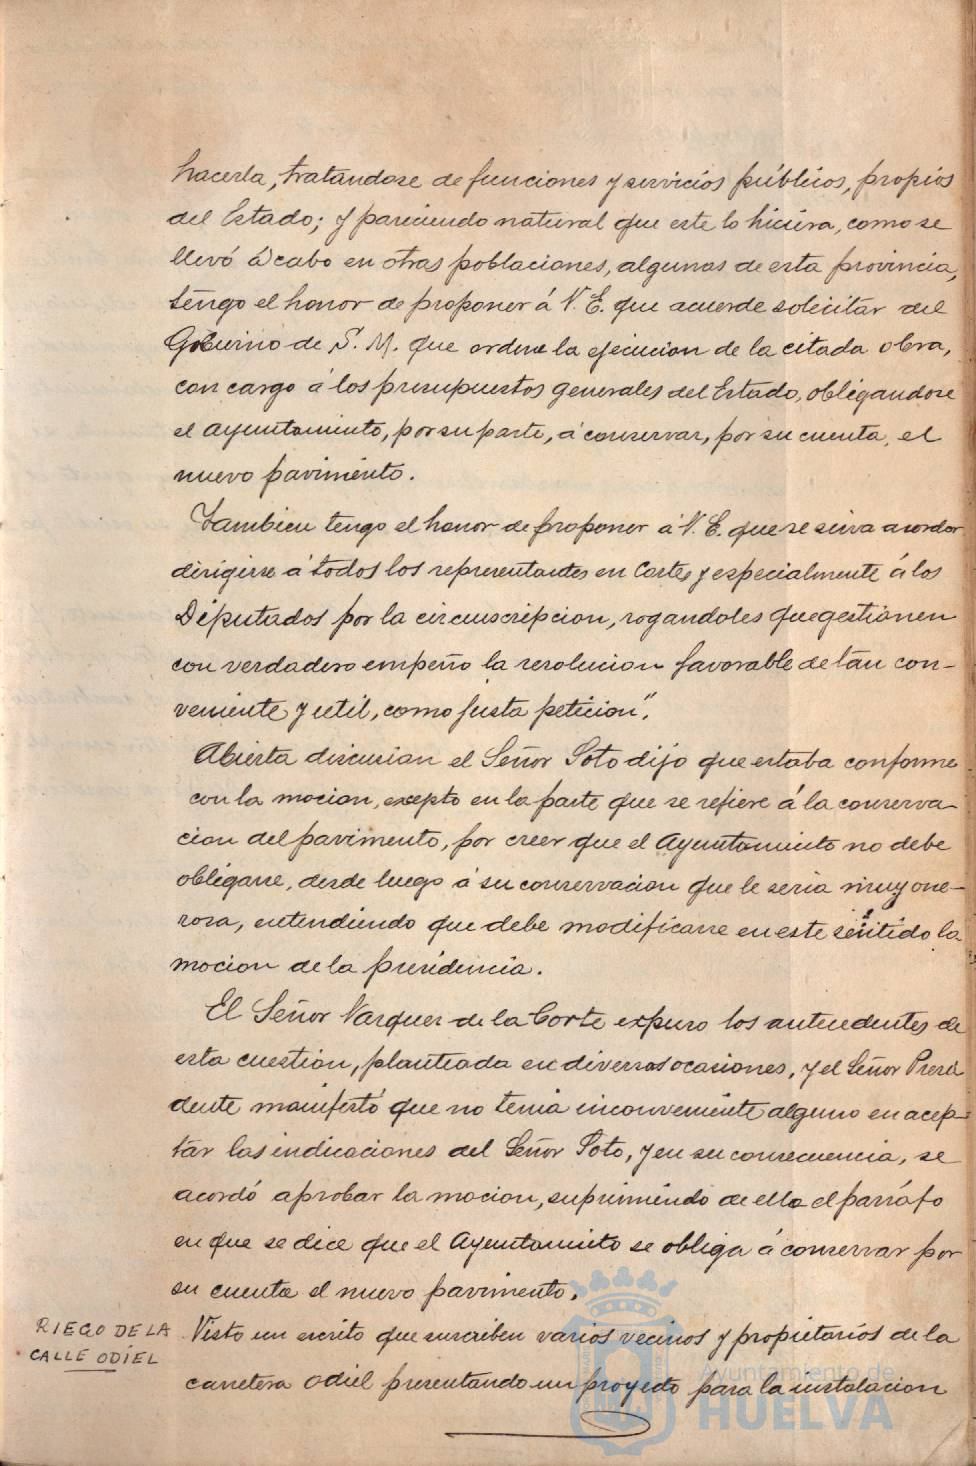 hacerla, tratandose de funciones y servicios públicos, propios
del Estado; y pareciendo natural que este lo hiciera, como se
llevó á cabo en otras poblaciones, algunas de esta provincia,
tengo el honor de proponer á V. E. que acuerde solicitar del
Gobierno de S. M. que ordene la ejecucion de la citada obra,
con cargo á los presupuestos generales del Estado, obligandose
el Ayuntamiento, por su parte, á conservar, por su cuenta, el
nuevo pavimento.
Tambien tengo el honor de proponer á V. E. que se sirva acordar
dirigirse á todos los representantes en Cortes y especialmente á los
Diputados por la circunscripcion, rogandoles que gestionen
con verdadero empeño la resolucion favorable de tan con-
veniente y util, como justa peticion".
Abierta discusion el Señor Soto dijo que estaba conforme
con la mocion, excepto en la parte que se refiere á la conserva-
cion del pavimento, por creer que el Ayuntamiento no debe
obligarse, desde luego á su conservacion que le seria muy one-
rosa, entendiendo que debe modificarse en este sentido la
mocion de la presidencia.
El Señor Vazquez de la Corte expuso los antecedentes de
esta cuestion, planteada en diversas ocasiones, y el Señor Presi-
dente manifestó que no tenia inconveniente alguno en acep-
tar las indicaciones del Señor Soto, y en su consecuencia, se
acordó aprobar la mocion, suprimiendo de ella el parráfo
en que se dice que el Ayuntamiento se obliga á conservar por
su cuenta el nuevo pavimento.
RIEGO DE LA
CALLE ODIEL
Visto un escrito que suscriben varios vecinos y propietarios de la
carretera Odiel presentando un proyecto para la instalacion
Ayuntamiento de
HUELVA